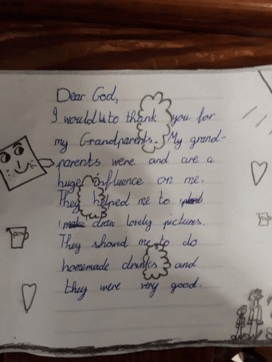 Dear God,
I would li to thank you for
my Grandparents. My grand-
parents were and are a
huge influence on me.
They helped me to
draw lovely pictures.
They shared me to do
homemade drinks and
they were very good.